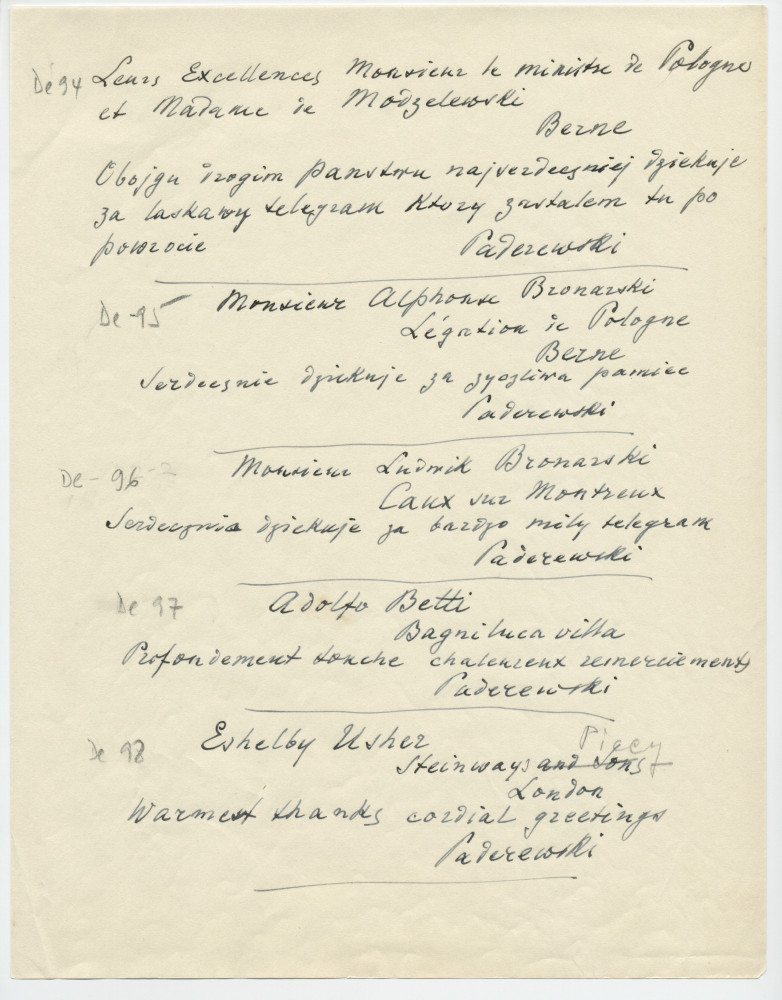 De 94 Leurs Excellences Monsieur le ministre de Pologne
et Madame de Modzelewski
Berne
Obojgu drogim Panstwu najserdeczniej dziekuje
za laskawy telegram Ktory zastalem tu po
powrocie Paderewski
De-95 Monsieur Alphonse Bronarski
Légation de Pologne
Berne
Serdecznie dziekuje za zyczliwa pamiec
Paderewski
De-96 Monsieur Ludwik Bronarski
Caux sur Montreux
Serdecznie dziekuje za bardzo mily telegram
Paderewski
De 97 Adolfo Betti
Bagniluca villa
Profondement touche chaleureux remerciements
Paderewski
De 98 Eshelby Usher
Steinways and Sons Piccy
London
Warmest thanks cordial greetings
Paderewski